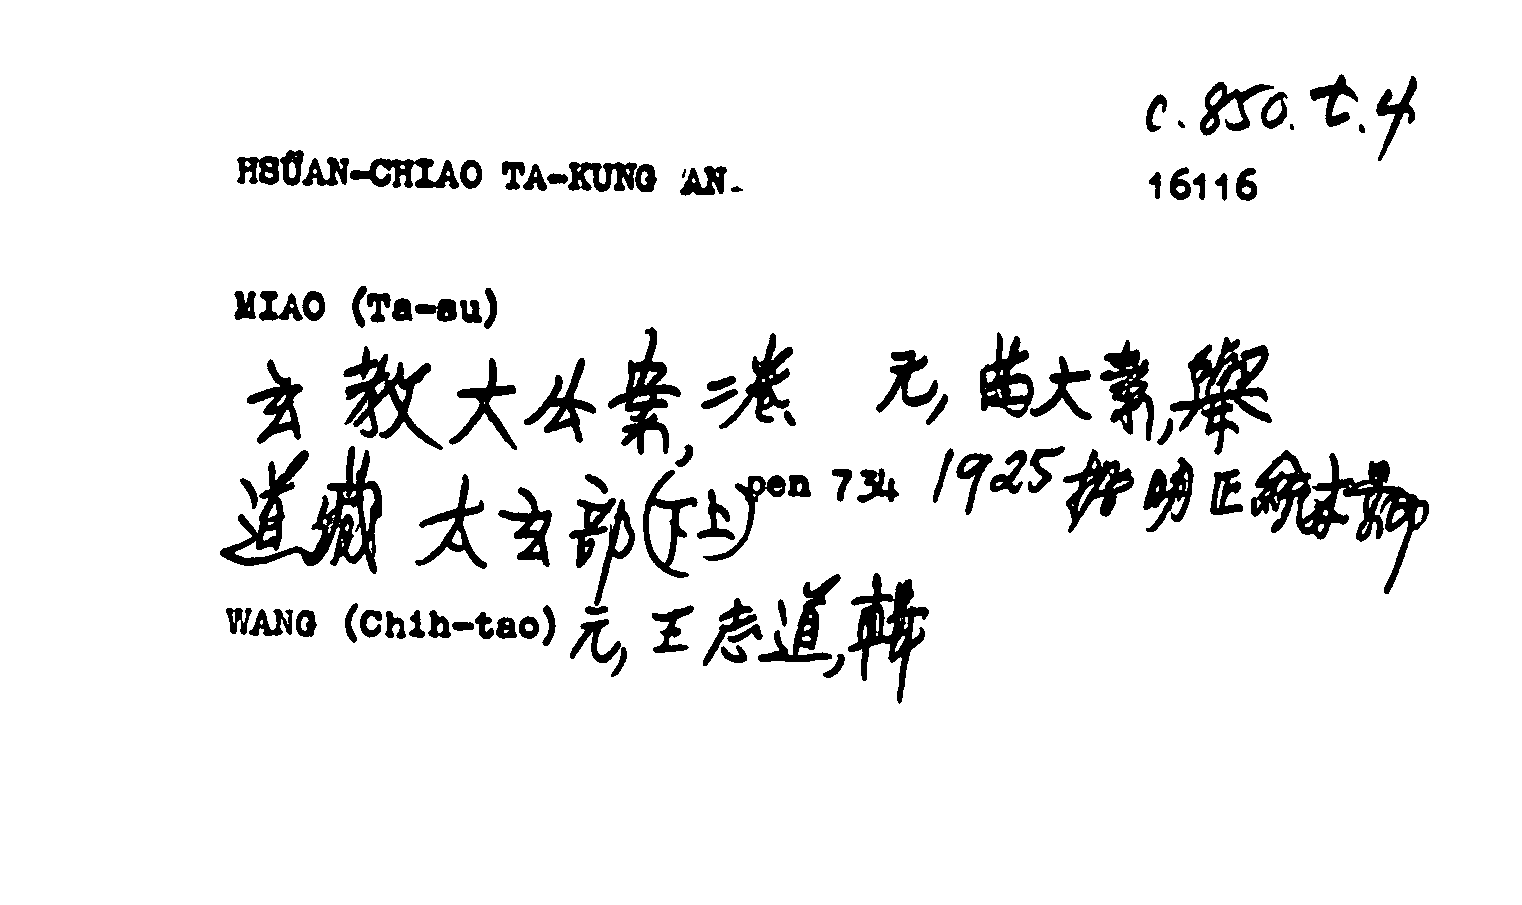 c.850.t.4
HSÜAN-CHIAO TA-KUNG AN.
16116
MIAO (Ta-su)
玄教大公案,二卷 元,苗大素,舉
道藏 太玄部(下上) pen 734 1925 據明正統本景印
WANG (Chih-tao) 元,王志道,輯